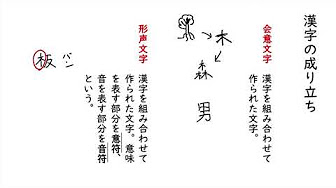 漢字の成り立ち
会意文字
漢字を組み合わせて
作られた文字。
木
森
男
形声文字
漢字を組み合わせて
作られた文字。意味
を表す部分を意符、
音を表す部分を音符
という。
板
ハン